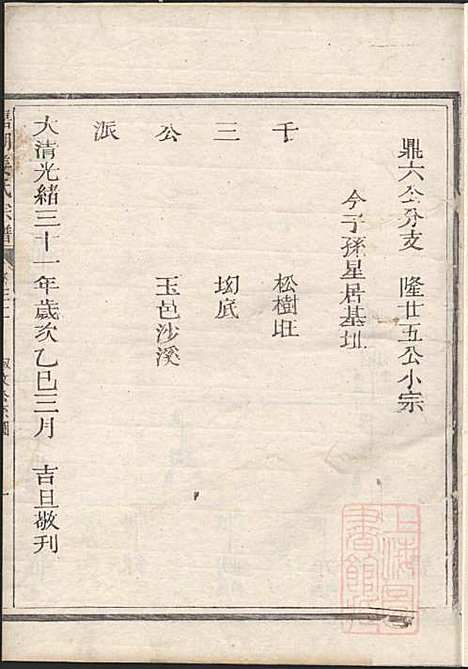 鼎六公分支　隆廿五公小宗
今子孫星居基址
千　松樹旺
三　坳底
公　玉邑沙溪
派
大清光緒三十一年歲次乙巳三月　吉旦敬刊
氏宗譜